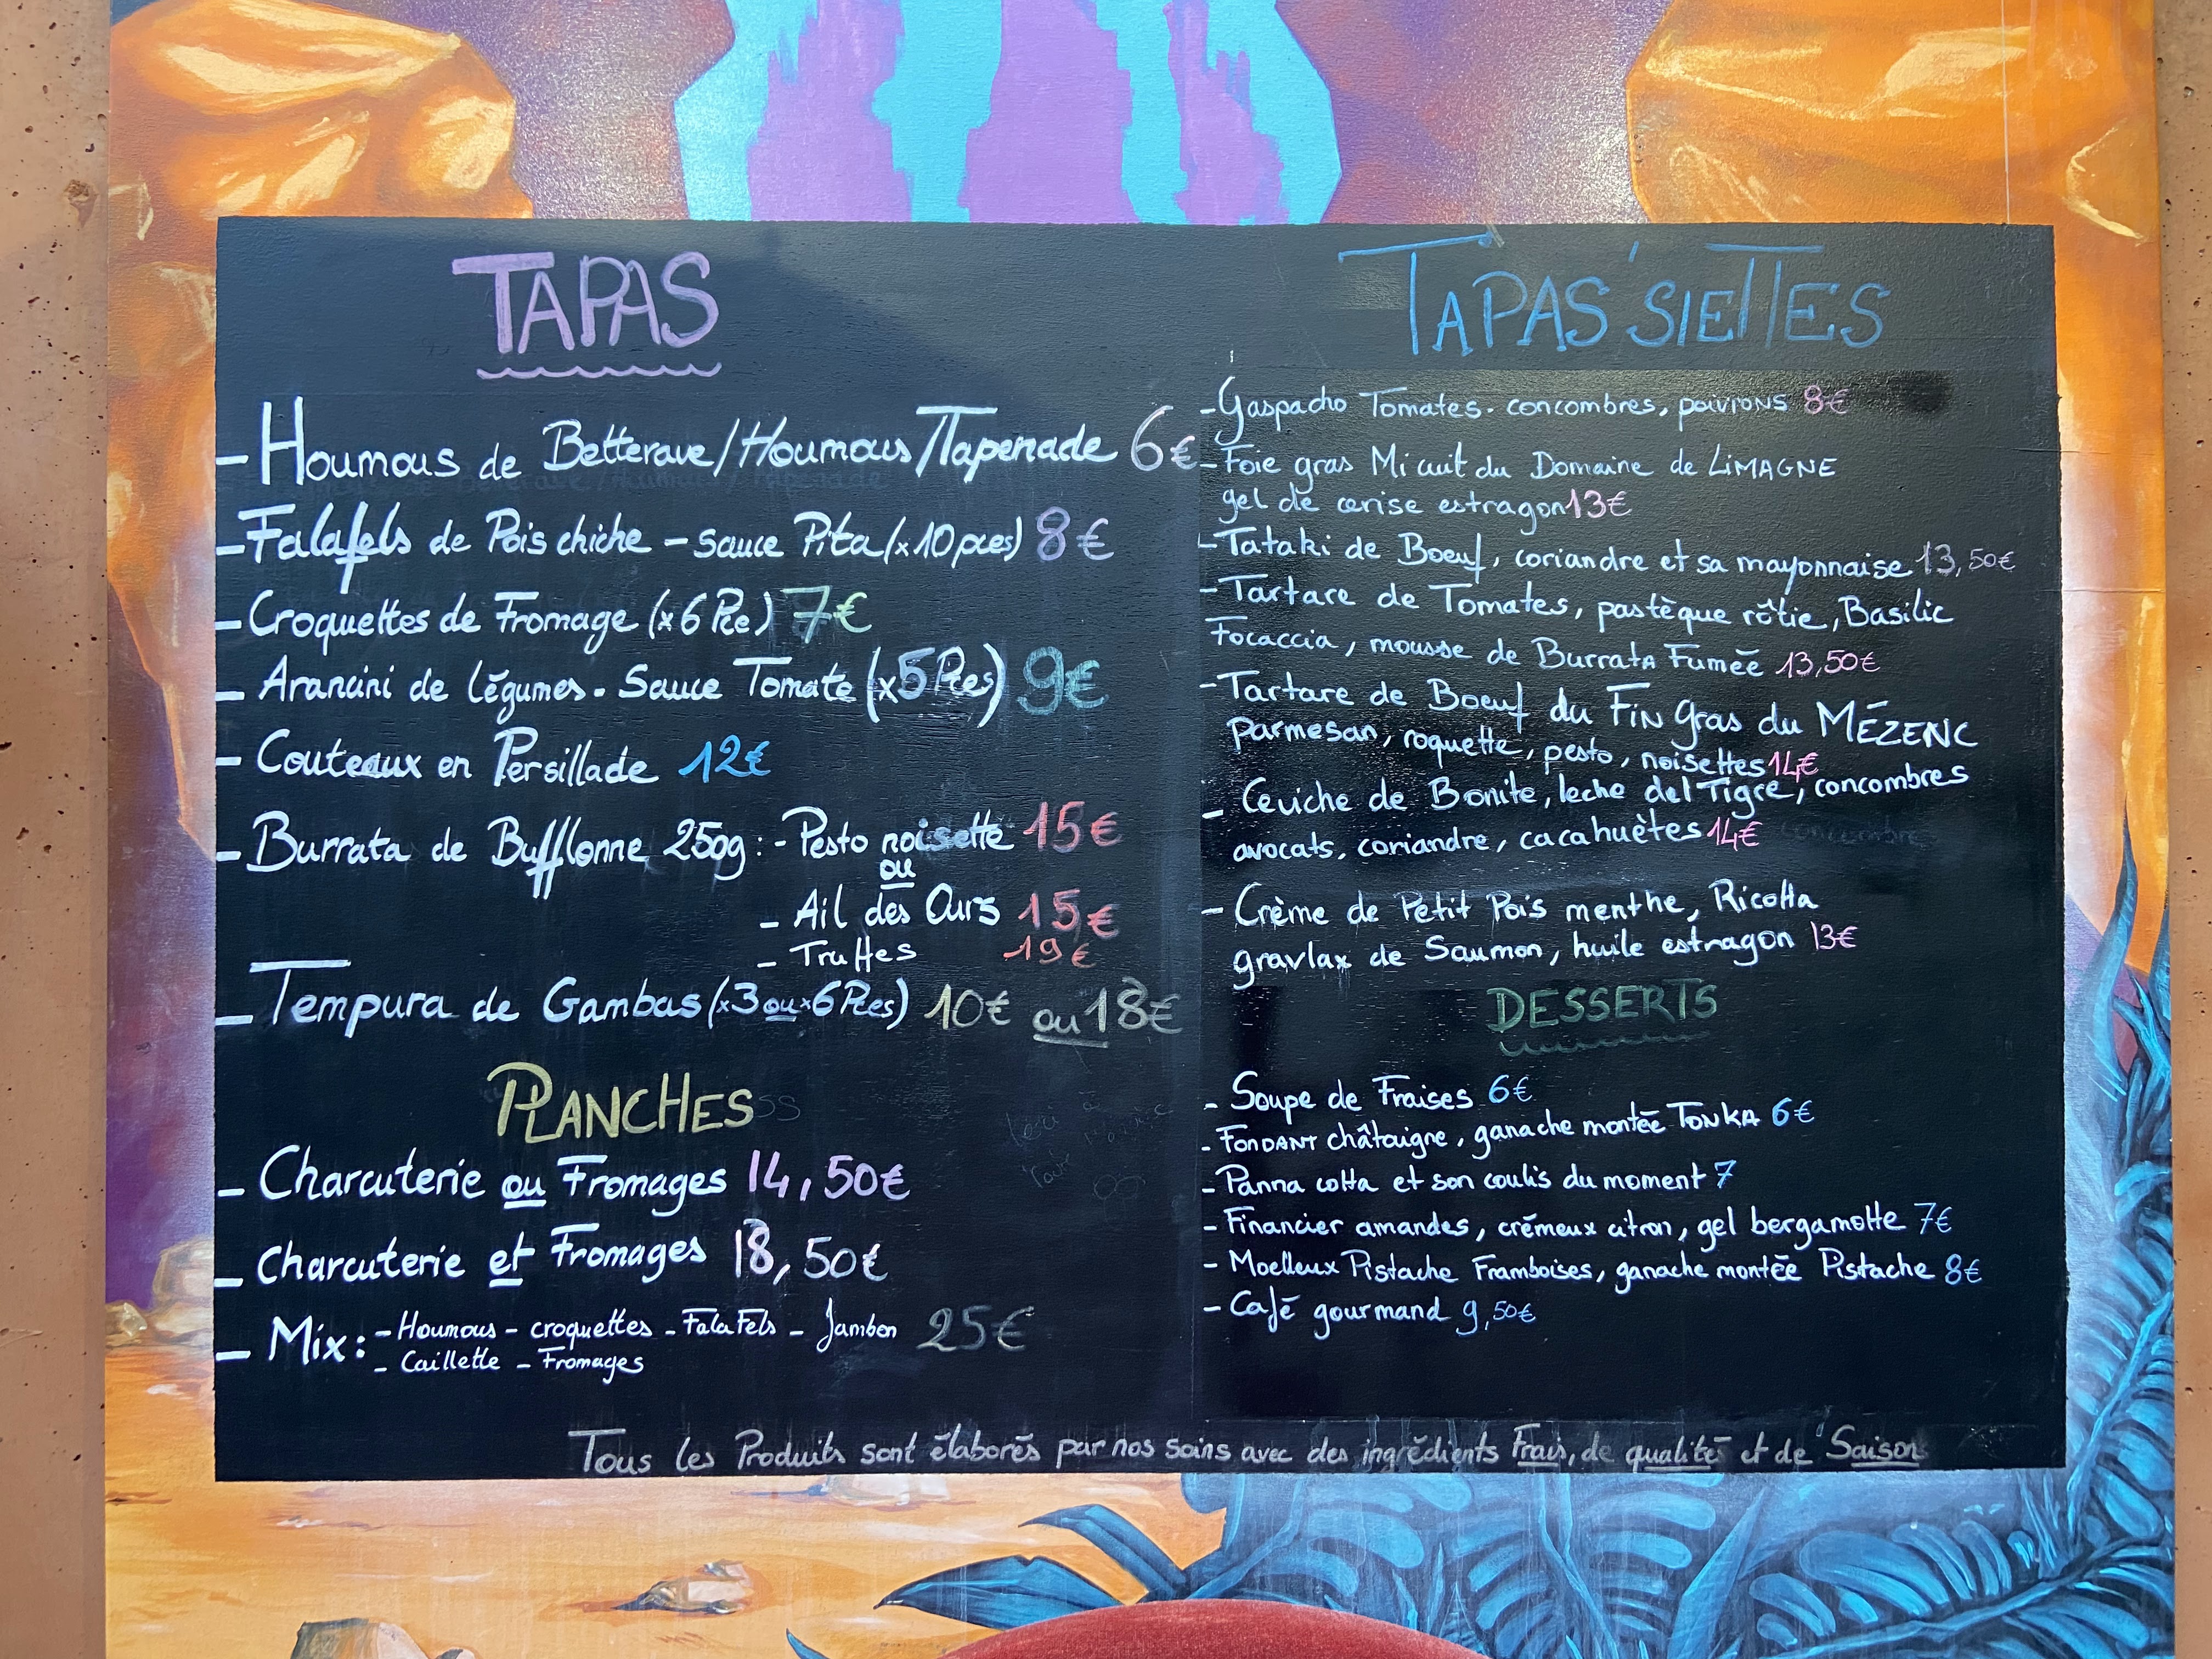 TAPAS
- Houmous de Betterave/Houmous/Tapenade 6€
- Falafels de Pois chiche - sauce Pita (x10 pces) 8€
- Croquettes de Fromage (x6 Pce) 7€
- Arancini de légumes - Sauce Tomate (x5 Pces) 9€
- Couteaux en Persillade 12€
- Burrata de Bufflonne 250g : - Pesto noisette 15€
ou
- Ail des Ours 15€
- Truffes 19€
- Tempura de Gambas (x3 ou x6 Pces) 10€ ou 18€
PLANCHES
- Charcuterie ou Fromages 14,50€
- Charcuterie et Fromages 18,50€
- Mix : - Houmous - croquettes - Falafels - Jambon 25€
- Caillette - Fromages
TAPAS'SIETTES
- Gaspacho Tomates. concombres, poivrons 8€
- Foie gras Mi cuit du Domaine de LIMAGNE
gel de cerise estragon 13€
- Tataki de Boeuf, coriandre et sa mayonnaise 13,50€
- Tartare de Tomates, pastèque rôtie, Basilic
Focaccia, mousse de Burrata Fumée 13,50€
- Tartare de Boeuf du Fin Gras du MÉZENC
parmesan, roquette, pesto, noisettes 14€
- Ceviche de Bonite, leche del Tigre, concombres
avocats, coriandre, cacahuètes 14€
- Crème de Petit Pois menthe, Ricotta
gravlax de Saumon, huile estragon 13€
DESSERTS
- Soupe de Fraises 6€
- FONDANT châtaigne, ganache montée TONKA 6€
- Panna cotta et son coulis du moment 7
- Financier amandes, crémeux citron, gel bergamotte 7€
- Moelleux Pistache Framboises, ganache montée Pistache 8€
- Café gourmand 9,50€
Tous les Produits sont élaborés par nos soins avec des ingrédients Frais, de qualité et de Saison